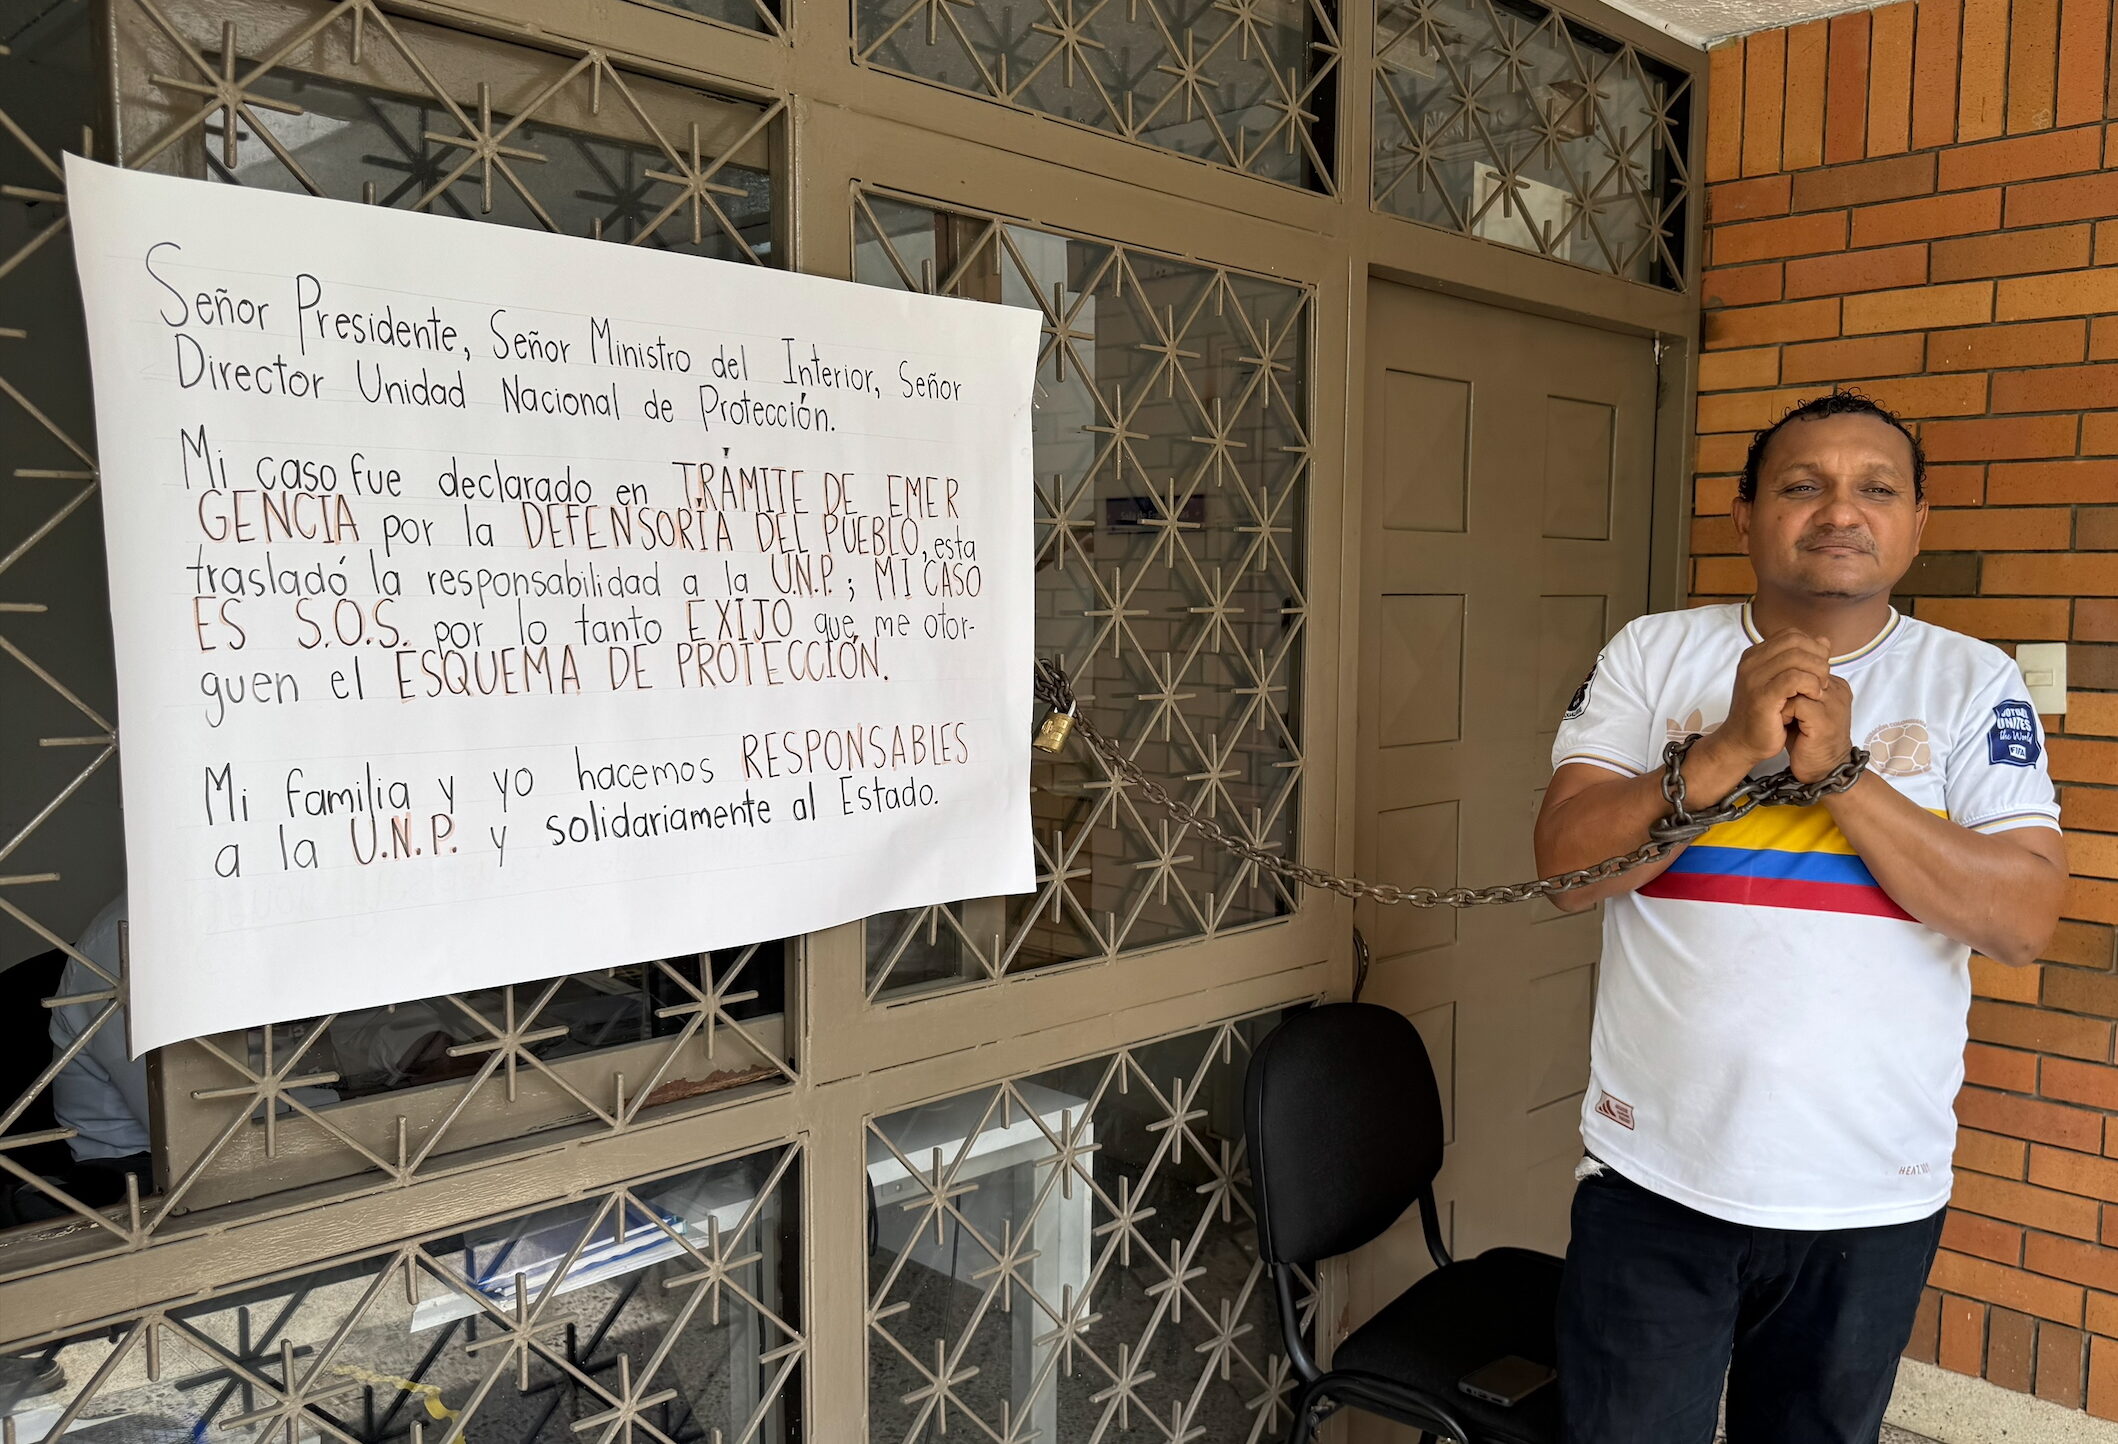 Señor Presidente, Señor Ministro del Interior, Señor
Director Unidad Nacional de Protección.
Mi caso fue declarado en TRÁMITE DE EMER
GENCIA por la DEFENSORÍA DEL PUEBLO, esta
trasladó la responsabilidad a la U.N.P.; MI CASO
ES S.O.S. por lo tanto EXIJO que me otor-
guen el ESQUEMA DE PROTECCIÓN.
Mi familia y yo hacemos RESPONSABLES
a la U.N.P. y solidariamente al Estado.
FOOTBALL
UNITES
the World
FIFA